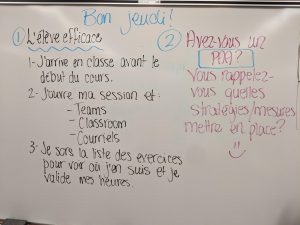 Bon jeudi!
① L'élève efficace
1- J'arrive en classe avant le
début du cours.
2- J'ouvre ma session et:
- Teams
- Classroom
- Courriels
3- Je sors la liste des exercices
pour voir où j'en suis et je
valide mes heures.
② Avez-vous un
POA?
Vous rappelez-
vous quelles
stratégies/mesures
mettre en place?